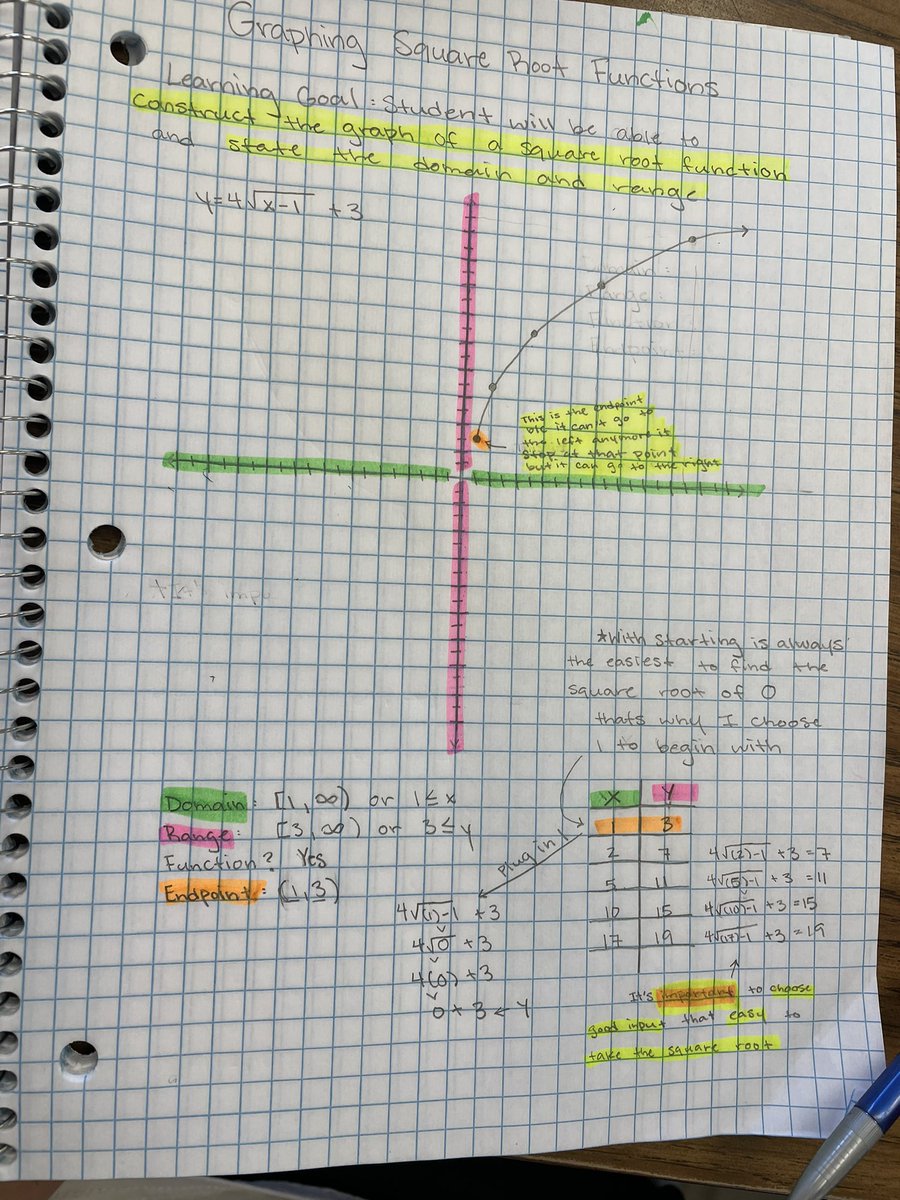 Graphing Square Root Functions
Learning Goal: Student will be able to
construct the graph of a square root function
and state the domain and range
y=4√x-1 +3
This is the endpoint
it can't go to
the left anymore it
stop at that point
but it can go to the right
*With starting is always
the easiest to find the
square root of 0
thats why I choose
1 to begin with
Domain: [1,∞) or 1≤x
Range: [3,∞) or 3≤y
Function? Yes
Endpoint: (1,3)
plug in 1
4√(1)-1 +3
4√0 +3
4(0)+3
0+3←y
X Y
1 3
2 7 4√(2)-1 +3=7
5 11 4√(5)-1 +3=11
10 15 4√(10)-1 +3=15
17 19 4√(17)-1 +3=19
It's important to choose
good input that easy to
take the square root